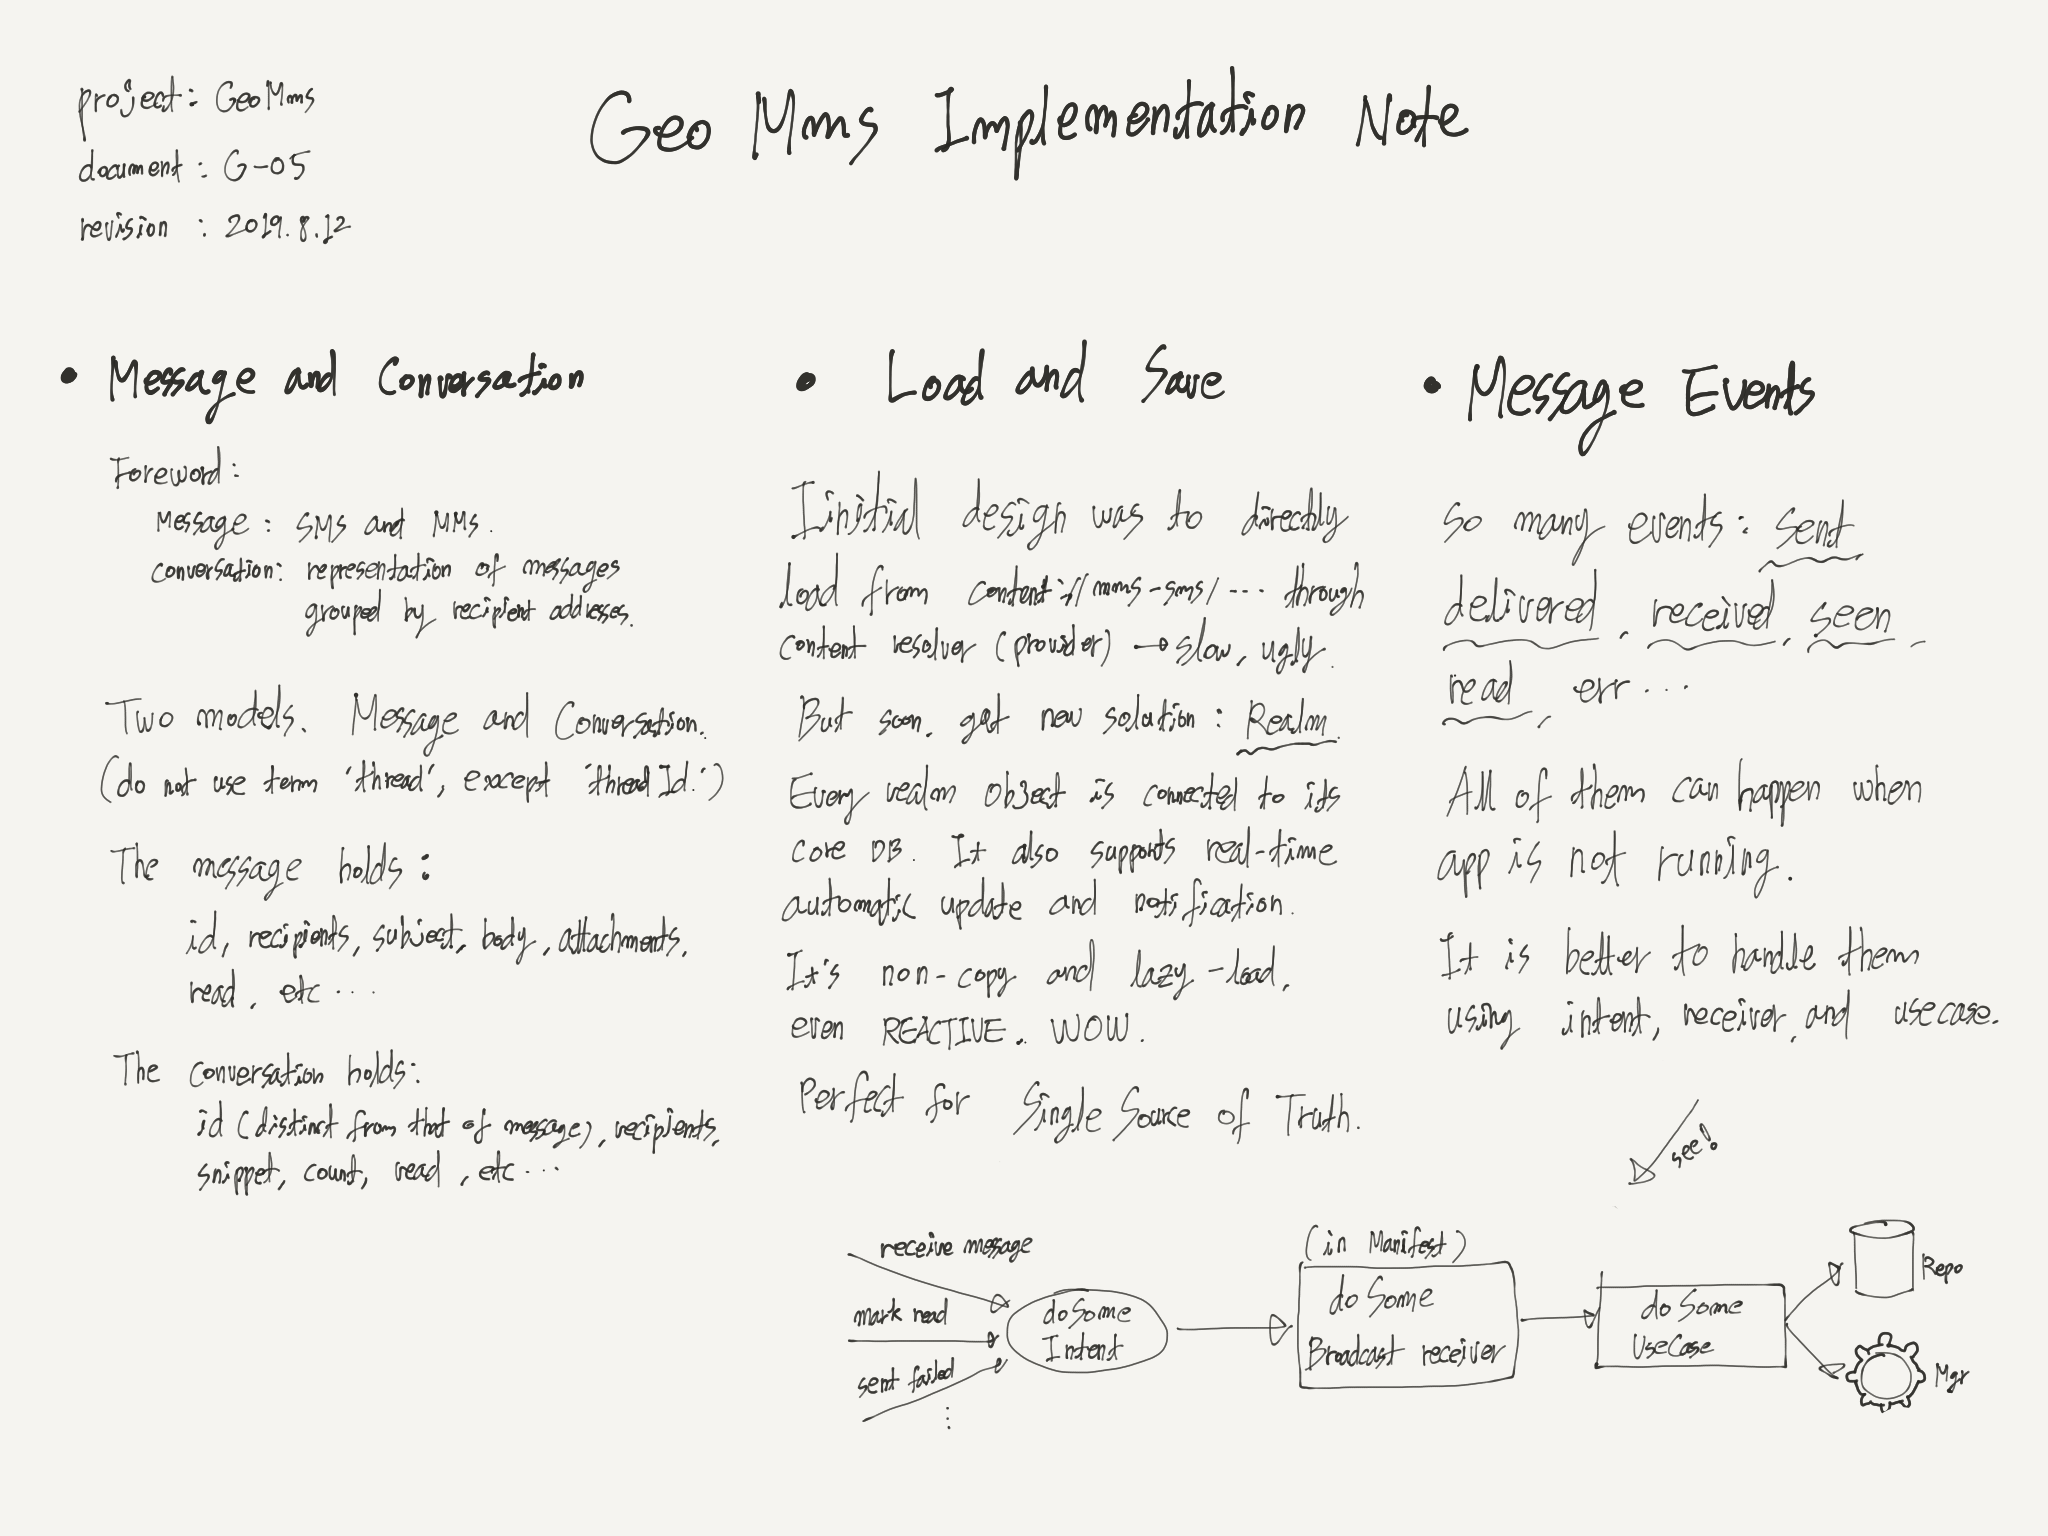 project: GeoMms
document: G-05
revision: 2019.8.12
Geo Mms Implementation Note
• Message and Conversation
Foreword:
Message: SMS and MMS.
conversation: representation of messages
grouped by recipient addresses.
Two models. Message and Conversation.
(do not use term 'thread', except 'threadId.')
The message holds:
id, recipients, subject, body, attachments,
read, etc...
The conversation holds:
id (distinct from that of message), recipients,
snippet, count, read, etc...
• Load and Save
Initial design was to directly
load from content://mms-sms/... through
content resolver (provider) → slow, ugly.
But soon, got new solution: Realm.
Every realm object is connected to its
core DB. It also supports real-time
automatic update and notification.
It's non-copy and lazy-load,
even REACTIVE. WOW.
Perfect for Single Source of Truth.
• Message Events
So many events: sent
delivered, received, seen,
read, err...
All of them can happen when
app is not running.
It is better to handle them
using intent, receiver, and usecase.
see!
receive message
mark read
sent failed
⋮
doSome
Intent
(in Manifest)
doSome
Broadcast receiver
doSome
UseCase
Repo
Mgr